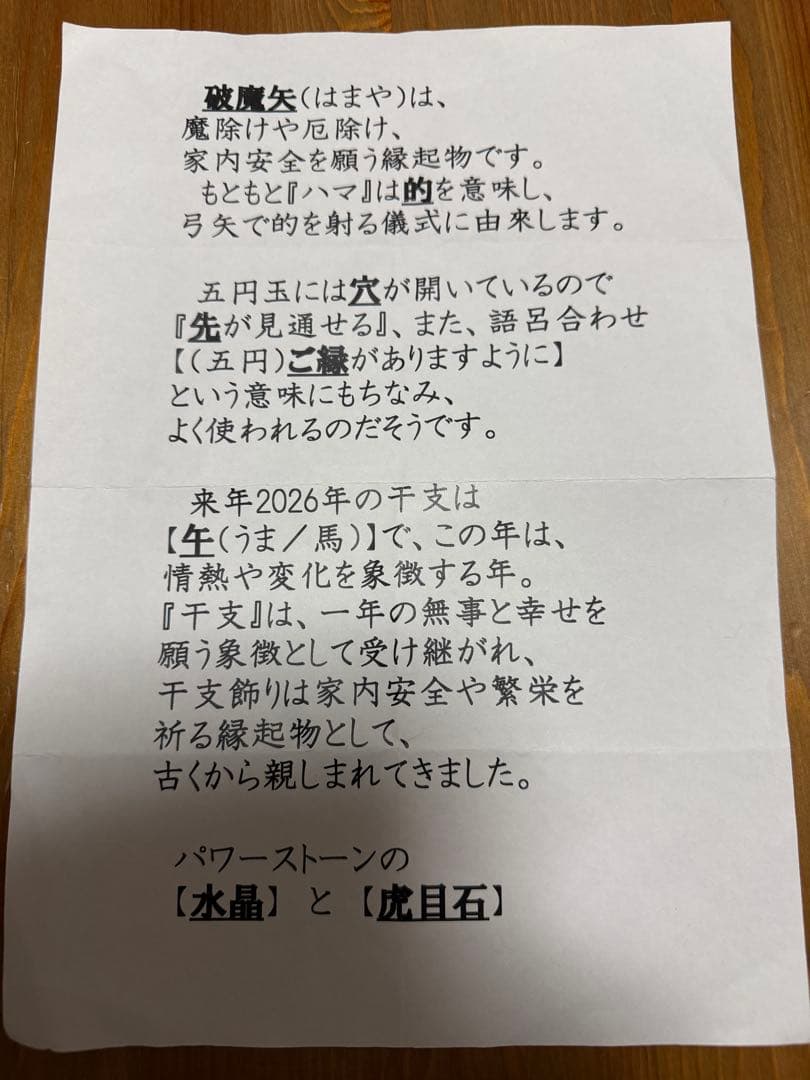 破魔矢(はまや)は、
魔除けや厄除け、
家内安全を願う縁起物です。
もともと『ハマ』は的を意味し、
弓矢で的を射る儀式に由來します。
五円玉には穴が開いているので
『先が見通せる』、また、語呂合わせ
【(五円)ご縁がありますように】
という意味にもちなみ、
よく使われるのだそうです。
来年2026年の干支は
【午(うま／馬)】で、この年は、
情熱や変化を象徴する年。
『干支』は、一年の無事と幸せを
願う象徴として受け継がれ、
干支飾りは家内安全や繁栄を
祈る縁起物として、
古くから親しまれてきました。
パワーストーンの
【水晶】と【虎目石】